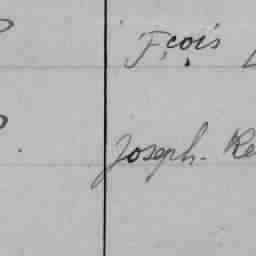 Fçois
Joseph. Re